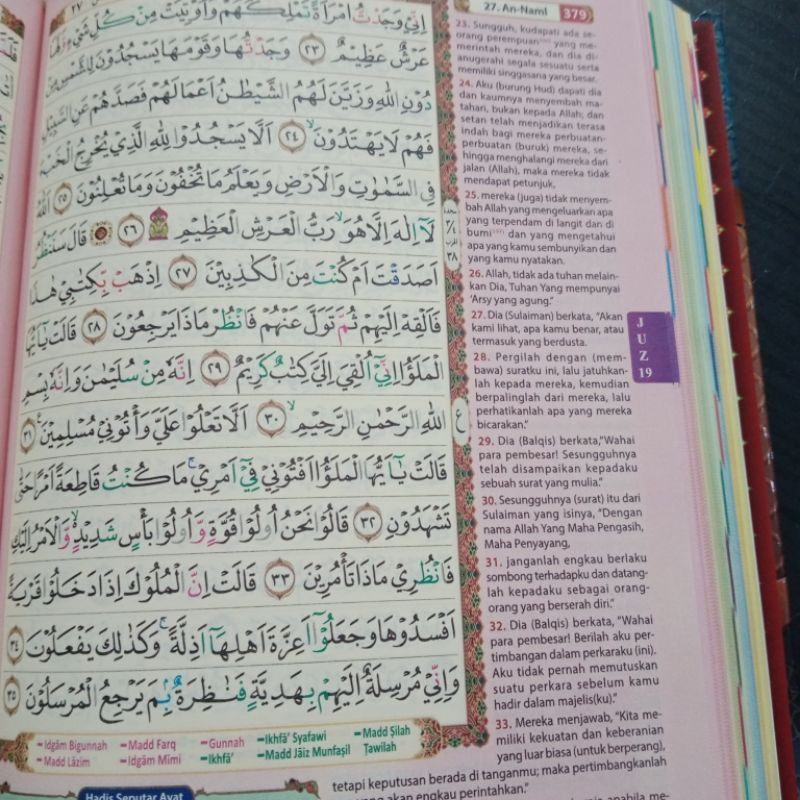 27. An-Naml 379
اِنِّيْ وَجَدْتُّ امْرَاَةً تَمْلِكُهُمْ وَاُوْتِيَتْ مِنْ كُلِّ شَيْءٍ وَّلَهَا
عَرْشٌ عَظِيْمٌ ٢٣ وَجَدْتُّهَا وَقَوْمَهَا يَسْجُدُوْنَ لِلشَّمْسِ مِنْ
دُوْنِ اللّٰهِ وَزَيَّنَ لَهُمُ الشَّيْطٰنُ اَعْمَالَهُمْ فَصَدَّهُمْ عَنِ السَّبِيْلِ
فَهُمْ لَا يَهْتَدُوْنَۙ ٢٤ اَلَّا يَسْجُدُوْا لِلّٰهِ الَّذِيْ يُخْرِجُ الْخَبْءَ
فِى السَّمٰوٰتِ وَالْاَرْضِ وَيَعْلَمُ مَا تُخْفُوْنَ وَمَا تُعْلِنُوْنَ ٢٥ اَللّٰهُ
لَآ اِلٰهَ اِلَّا هُوَۙ رَبُّ الْعَرْشِ الْعَظِيْمِ ٢٦ قَالَ سَنَنْظُرُ
اَصَدَقْتَ اَمْ كُنْتَ مِنَ الْكٰذِبِيْنَ ٢٧ اِذْهَبْ بِّكِتٰبِيْ هٰذَا
فَاَلْقِهْ اِلَيْهِمْ ثُمَّ تَوَلَّ عَنْهُمْ فَانْظُرْ مَاذَا يَرْجِعُوْنَ ٢٨ قَالَتْ يٰٓاَيُّهَا
الْمَلَؤُا اِنِّيْٓ اُلْقِيَ اِلَيَّ كِتٰبٌ كَرِيْمٌ ٢٩ اِنَّهٗ مِنْ سُلَيْمٰنَ وَاِنَّهٗ بِسْمِ
اللّٰهِ الرَّحْمٰنِ الرَّحِيْمِۙ ٣٠ اَلَّا تَعْلُوْا عَلَيَّ وَأْتُوْنِيْ مُسْلِمِيْنَ ࣖ ٣١
قَالَتْ يٰٓاَيُّهَا الْمَلَؤُا اَفْتُوْنِيْ فِيْٓ اَمْرِيْۚ مَا كُنْتُ قَاطِعَةً اَمْرًا حَتّٰى
تَشْهَدُوْنِ ٣٢ قَالُوْا نَحْنُ اُولُوْا قُوَّةٍ وَّاُولُوْا بَأْسٍ شَدِيْدٍۙ وَّالْاَمْرُ اِلَيْكِ
فَانْظُرِيْ مَاذَا تَأْمُرِيْنَ ٣٣ قَالَتْ اِنَّ الْمُلُوْكَ اِذَا دَخَلُوْا قَرْيَةً
اَفْسَدُوْهَا وَجَعَلُوْٓا اَعِزَّةَ اَهْلِهَآ اَذِلَّةًۚ وَكَذٰلِكَ يَفْعَلُوْنَ ٣٤
وَاِنِّيْ مُرْسِلَةٌ اِلَيْهِمْ بِهَدِيَّةٍ فَنٰظِرَةٌ ۢ بِمَ يَرْجِعُ الْمُرْسَلُوْنَ ٣٥
Idgām Bigunnah Madd Farq Gunnah Ikhfā' Syafawi Madd Ṣilah
Madd Lāzim Idgām Mīmi Ikhfā' Madd Jāiz Munfaṣil Ṭawīlah
Hadis Seputar Ayat
23. Sungguh, kudapati ada se-
orang perempuan yang me-
merintah mereka, dan dia di-
anugerahi segala sesuatu serta
memiliki singgasana yang besar.
24. Aku (burung Hud) dapati dia
dan kaumnya menyembah ma-
tahari, bukan kepada Allah; dan
setan telah menjadikan terasa
indah bagi mereka perbuatan-
perbuatan (buruk) mereka, se-
hingga menghalangi mereka dari
jalan (Allah), maka mereka tidak
mendapat petunjuk,
25. mereka (juga) tidak menyem-
bah Allah yang mengeluarkan apa
yang terpendam di langit dan di
bumi dan yang mengetahui
apa yang kamu sembunyikan dan
yang kamu nyatakan.
26. Allah, tidak ada tuhan melain-
kan Dia, Tuhan Yang mempunyai
'Arsy yang agung."
27. Dia (Sulaiman) berkata, "Akan
kami lihat, apa kamu benar, atau
termasuk yang berdusta.
28. Pergilah dengan (mem-
bawa) suratku ini, lalu jatuhkan-
lah kepada mereka, kemudian
berpalinglah dari mereka, lalu
perhatikanlah apa yang mereka
bicarakan."
29. Dia (Balqis) berkata,"Wahai
para pembesar! Sesungguhnya
telah disampaikan kepadaku
sebuah surat yang mulia."
30. Sesungguhnya (surat) itu dari
Sulaiman yang isinya, "Dengan
nama Allah Yang Maha Pengasih,
Maha Penyayang,
31. janganlah engkau berlaku
sombong terhadapku dan datang-
lah kepadaku sebagai orang-
orang yang berserah diri."
32. Dia (Balqis) berkata, "Wahai
para pembesar! Berilah aku per-
timbangan dalam perkaraku (ini).
Aku tidak pernah memutuskan
suatu perkara sebelum kamu
hadir dalam majelis(ku)."
33. Mereka menjawab, "Kita me-
miliki kekuatan dan keberanian
yang luar biasa (untuk berperang),
tetapi keputusan berada di tanganmu; maka pertimbangkanlah
yang akan engkau perintahkan."
apabila me-
J
U
Z
19